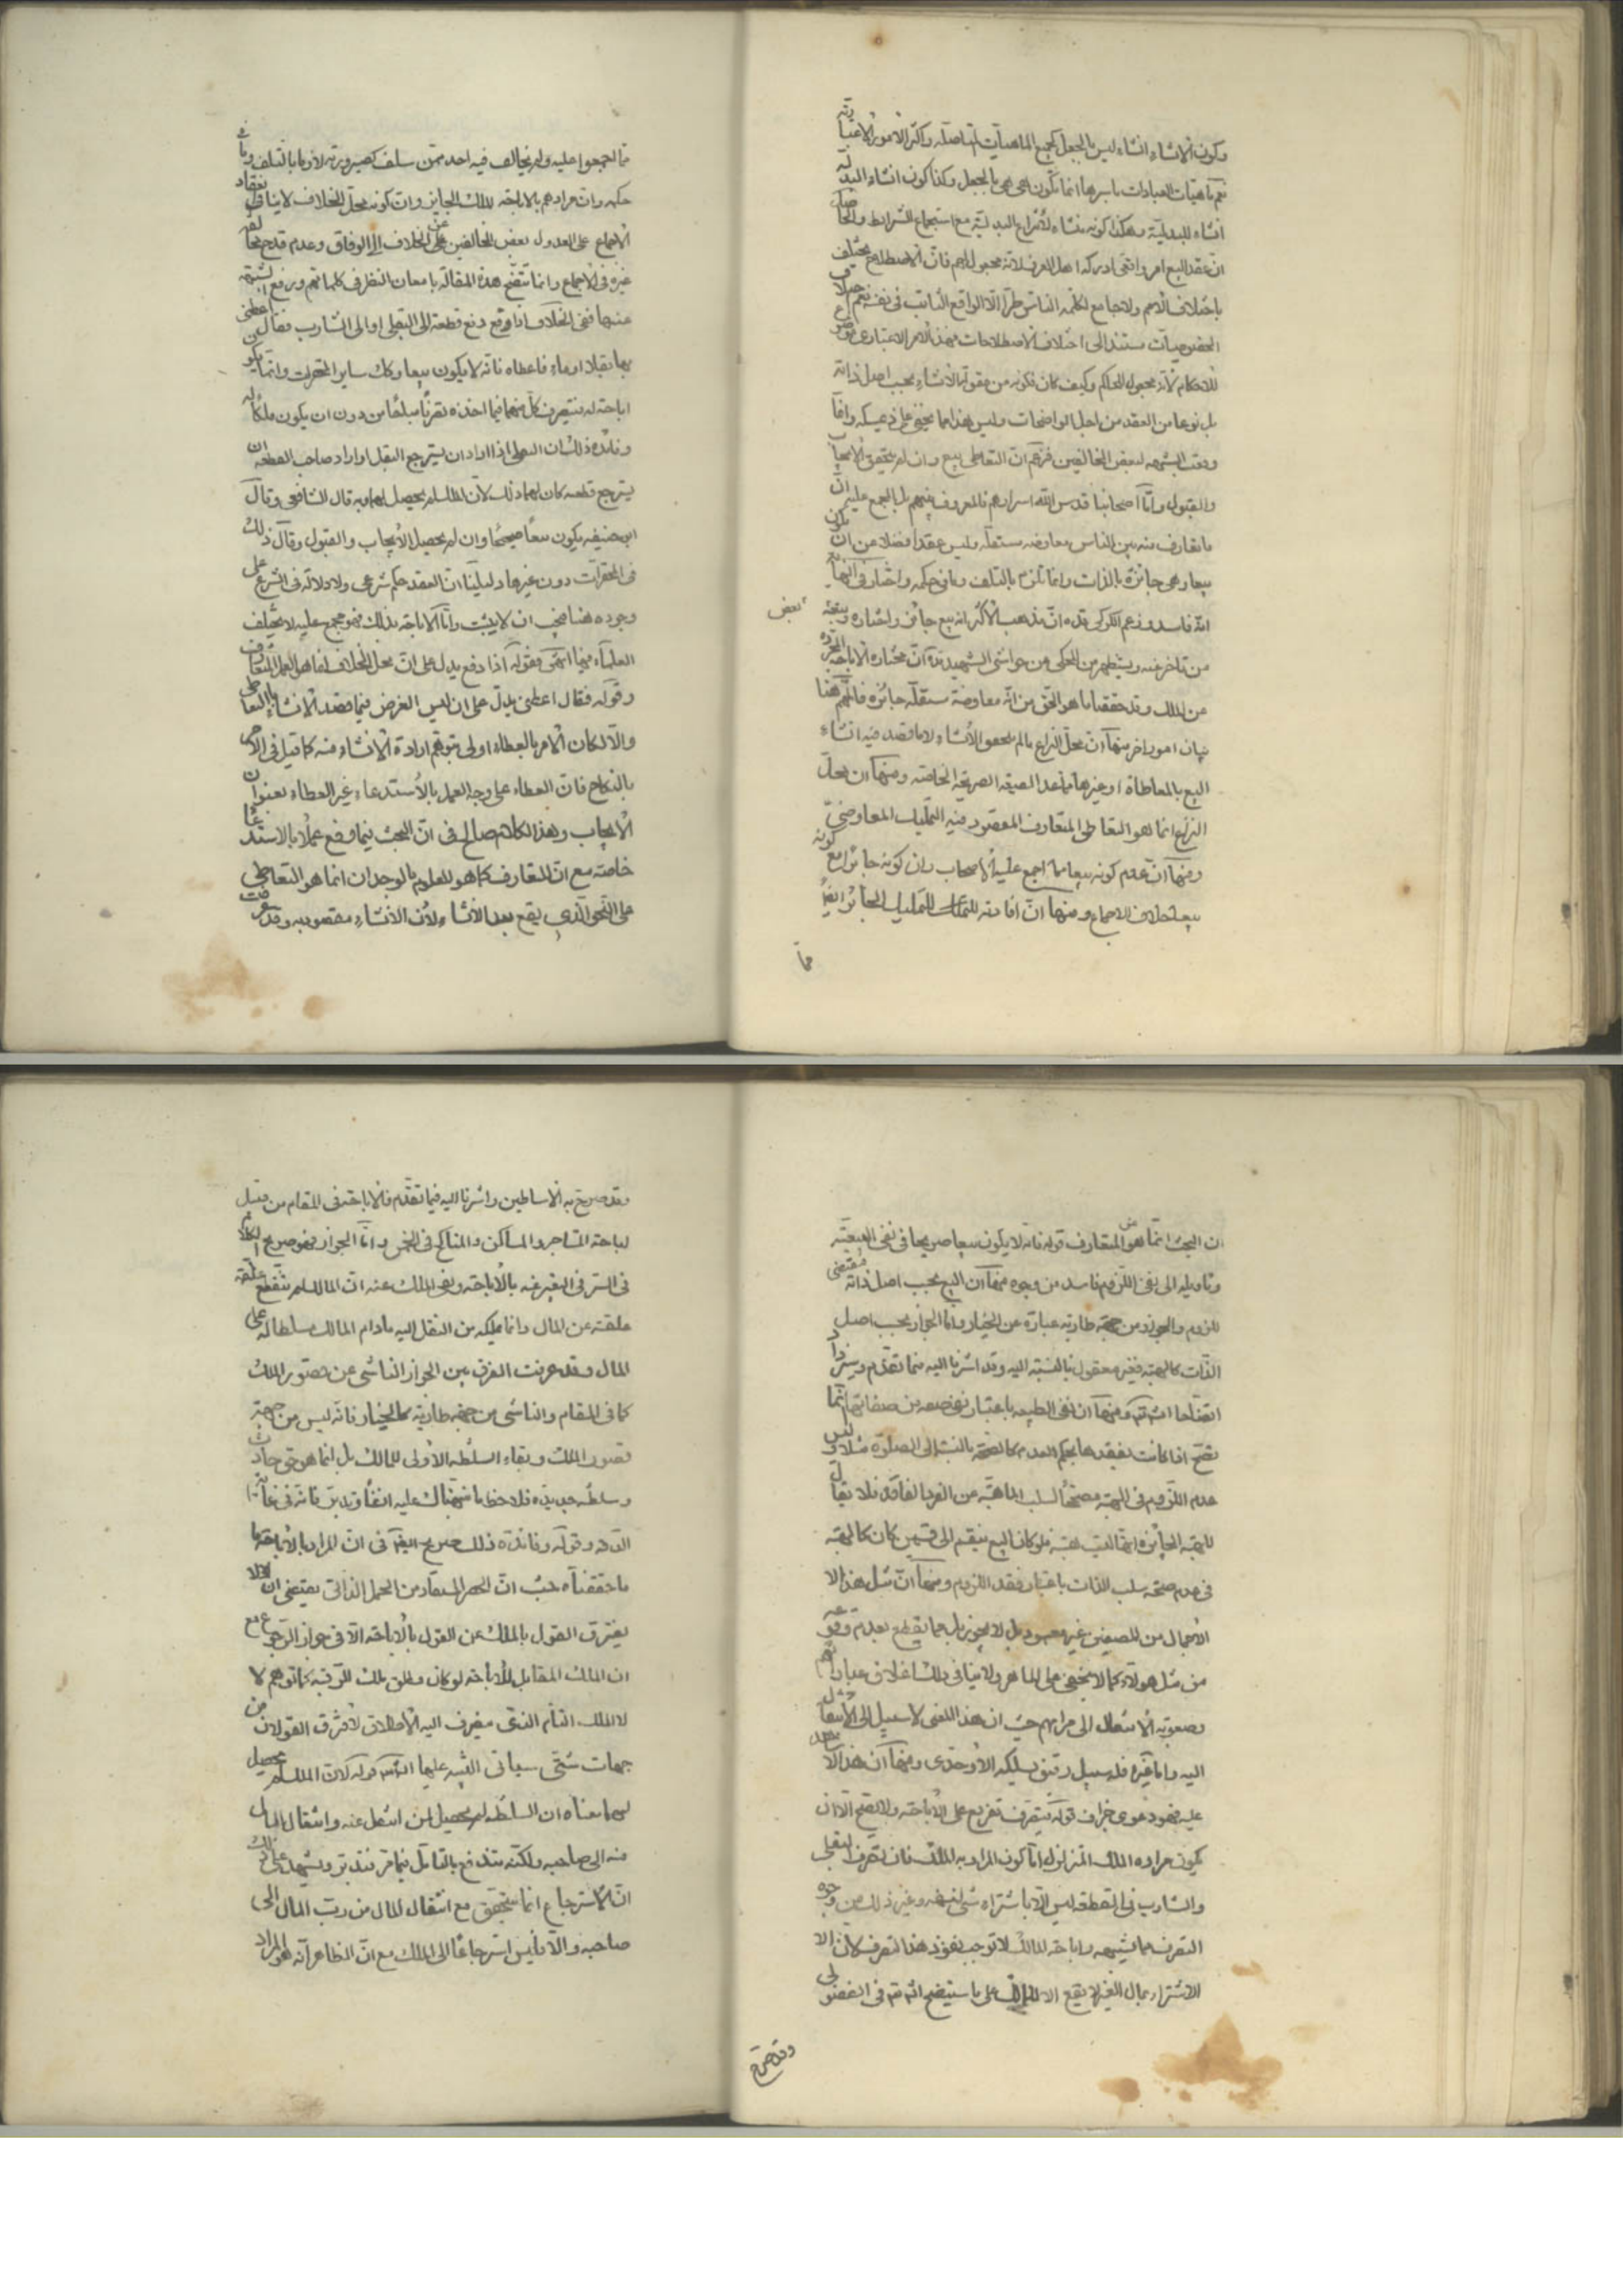 وكون الانشاء انشاء ليس بالجعل كجميع الماهيات المتاصلة واكثر الامور الاعتبارية
نعم ماهيات العبادات باسرها انما تكون هي هي بالجعل وكذا كون انشاء البدلية
انشاء للبدلية وهكذا كونه منشاء لانتزاع البدلية مع استجماع الشرايط والحاصل
ان عقد البيع امر واقعي ادركه اهل العرف لا انه مجعول لهم فان الاصطلاح يختلف
باختلاف الامم ولا جامع لكلمة الناس طرا الا الواقع الثابت في نفسه نعم اختلاف
الخصوصيات مستند الى اختلاف الاصطلاحات فهذا الامر الاعتباري موضوع
للاحكام لا انه مجعول للحاكم وكيف كان فكونه من مقولة الانشاء بحسب اصل ذاته
بل نوعا من العقد من اجل الواضحات وليس هذا مما يخفى على ذي مسكة وانما
وقعت الشبهة لبعض المخالفين فزعم ان التعاطي بيع وان لم يتحقق الايجاب
والقبول واما اصحابنا قدس الله اسرارهم فالمعروف بينهم بل المجمع عليه ان
ما تعارف منه بين الناس معاوضة مستقلة وليس عقدا فضلا من ان يكون
بيعا وهي جائزة بالذات وانما تلزم بالتلف وما في حكمه واختار في النهاية
انه فاسد وزعم الكركي قده ان مذهب الاكثر انه بيع جائز واختاره وتبعه بعض
من تاخر عنه ويظهر من المحكي من حواشي الشهيد ره ان مختاره الاباحة المجردة
عن الملك وقد حققنا ما هو الحق من انه معاوضة مستقلة جائزة فالمهم هنا
بيان امور اخر منها ان محل النزاع ما لم يتحقق الانشاء لا ما قصد فيه انشاء
البيع بالمعاطاة او غيرها مما عدا الصيغة الصريحة الخاصة ومنها ان محل
النزاع انما هو التعاطي المتعارف المقصود فيه التمليك المعاوضي
ومنها ان عدم كونه بيعا مما اجمع عليه الاصحاب وان كونه جائزا مع كونه
بيعا خلاف الاجماع ومنها ان افادته للتمليك الجائز ايضا
مما
مما اجمعوا عليه ولم يخالف فيه احد ممن سلف كصيرورته لازما بالتلف وما في
حكمه وان مرادهم بالاباحة الملك الجايز وان كونه محل الخلاف لا ينافي انعقاد
الاجماع على العدول بعض المخالفين عن الخلاف الى الوفاق وعدم قدح مخالفة
غيره في الاجماع وانما تتضح هذه المقالة بامعان النظر في كلماتهم ورفع الشبهة
عنها ففي الخلاف اذا وقع دفع قطعة الى البقلي او الى الشارب فقال اعطني
بها بقلا او ماء فاعطاه فانه لا يكون بيعا وكك ساير المحقرات وانما يكون
اباحة له يتصرف كل منهما فيما اخذه تصرفا مباحا من دون ان يكون ملكا له
وفائدة ذلك ان البقلي اذا اراد ان يسترجع البقل او اراد صاحب القطعة ان
يسترجع قطعته كان لهما ذلك لان الملك لم يحصل لهما وبه قال الشافعي وقال
ابو حنيفة يكون بيعا صحيحا وان لم يحصل الايجاب والقبول وقال ذلك
في المحقرات دون غيرها دليلنا ان العقد حكم شرعي ولا دلالة في الشرع على
وجوده هنا فيجب ان لا يثبت واما الاباحة بذلك فهو مجمع عليه لا يختلف
العلماء فيها انتهى فقوله اذا دفع يدل على ان محل الخلاف انما هو العمل المتعارف
وقوله فقال اعطني يدل على ان ليس الغرض فيما قصد الانشاء بالتعاطي
والا لكان الامر بالعطاء اولى بتوهم ارادة الانشاء منه كما قيل في الامر
بالنكاح فان العطاء على وجه العمل بالاستدعاء غير العطاء بعنوان
الايجاب وهذا الكلام صالح في ان البحث فيما وقع عملا بالاستدعاء
خاصة مع ان المتعارف كما هو المعلوم بالوجدان انما هو التعاطي
على النحو الذي يقع بعد الانشاء لا ان الانشاء مقصود به وقد عرفت
ان البحث انما هو من المتعارف قوله فانه لا يكون بيعا صريحا في نفي البيعية
وتاويله الى نفي اللزوم فاسد من وجوه منها ان البيع بحسب اصل ذاته مقتضى
للزوم والجواز من جهة طارية عبارة عن الخيار واما الجواز بحسب اصل
الذات كالهبة فغير معقول بالنسبة اليه وقد اشرنا اليه فيما تقدم وسيزداد
اتضاحا انش تم ومنها ان نفي الطبيعة باعتبار نفي صفة من صفاتها انما
تصح اذا كانت بفقدها بحكم العدم كالصحة بالنسبة الى الصلوة مثلا وليس
عدم اللزوم في الهبة مصححا لسلب الماهية عن الفرد الفاقد فلا يقال
للهبة الجائزة انها ليست هبة فلو كان البيع ينقسم الى قسمين كان كالهبة
في عدم صحة سلب الذات باعتبار فقد اللزوم ومنها ان مثل هذا الا
الاجمال من المصنفين غير معهود بل لا يجوز بل مما يقطع بعدم وقوعه
من مثل هولاء كما لا يخفى على الماهر ولا ينافي ذلك اغلاق عباراتهم
وصعوبة الانتقال الى مرامهم حيث ان هذا المعنى لا سبيل الى الانتقال
اليه واما غيره فله سبيل دقيق يسلكه الاوحدي ومنها ان هذا لا شاهد
عليه فهو دعوى جزاف قوله يتصرف تفريع على الاباحة ولا يصح الا ان
يكون مراده الملك المتزلزل اما كون المراد به الملك فان تصرف البقلي
والشارب في القطعة ليس الا باشتراء شئ لنفسه وغير ذلك من وجوه
التصرف مما يشبهه واباحة المالك لا توجب نفوذ هذا التصرف لان
الاشتراء بمال الغير لا يقع الا للمالك على ما سيتضح انش تم في الفضولي
وقد صرح
وقد صرح به الاساطين واشرنا اليه فيما تقدم فالاباحة في المقام من قبيل
اباحة المتاجر والمساكن والمناكح في الخمس واما الجواز فهو صريح الكلام
في السر في التعبير عنه بالاباحة ونفي الملك عنه ان المالك لم تنقطع علقته
علقته عن المال وانما يملكه من انتقل اليه ما دام المالك مسلطا له على
المال وقد عرفت الفرق بين الجواز الناشي عن قصور الملك
كما في المقام والناشي من جهة طارية كالخيار فانه ليس من جهة
قصور الملك وبقاء السلطة الاولى للمالك بل انما هو حق حادث
وسلطة جديدة فلاحظ ما نبهناك عليه انفا وتدبر فانه في غاية
الدقة وقوله وفائدة ذلك صريح في ان المراد بالاباحة ما
ما حققناه حيث ان الحصر المستفاد من الحمل الذاتي يقتضي ان لا
يفترق القول بالملك عن القول بالاباحة الا في جواز الرجوع مع
ان الملك المقابل للاباحة لو كان مطلق ملك الرقبة كما توهم لا
لا الملك التام الذي ينصرف اليه الاطلاق لافترق القولان من
جهات شتى سياتي التنبيه عليها انش قوله لان الملك لم يحصل
لهما معناه ان السلطة لم يحصل لمن انتقل عنه وانتقال المال
منه الى صاحبه ولكنه يندفع بالتامل فيما مر فتدبر ويشهد على ذلك
ان الاسترجاع انما يتحقق مع انتقال المال من رب المال الى
صاحبه والا فليس استرجاعا الى الملك مع ان الظاهر انه هو المراد